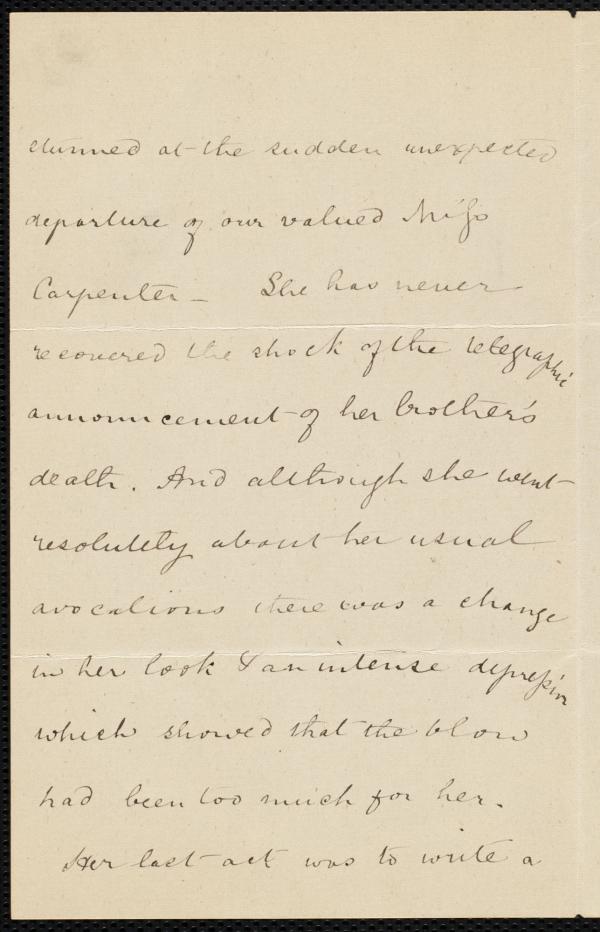 stunned at the sudden unexpected
departure of our valued Miss
Carpenter — She has never
recovered the shock of the telegraphic
announcement of her brother's
death. And although she went
resolutely about her usual
avocations there was a change
in her look & an intense depression
which showed that the blow
had been too much for her.
Her last act was to write a